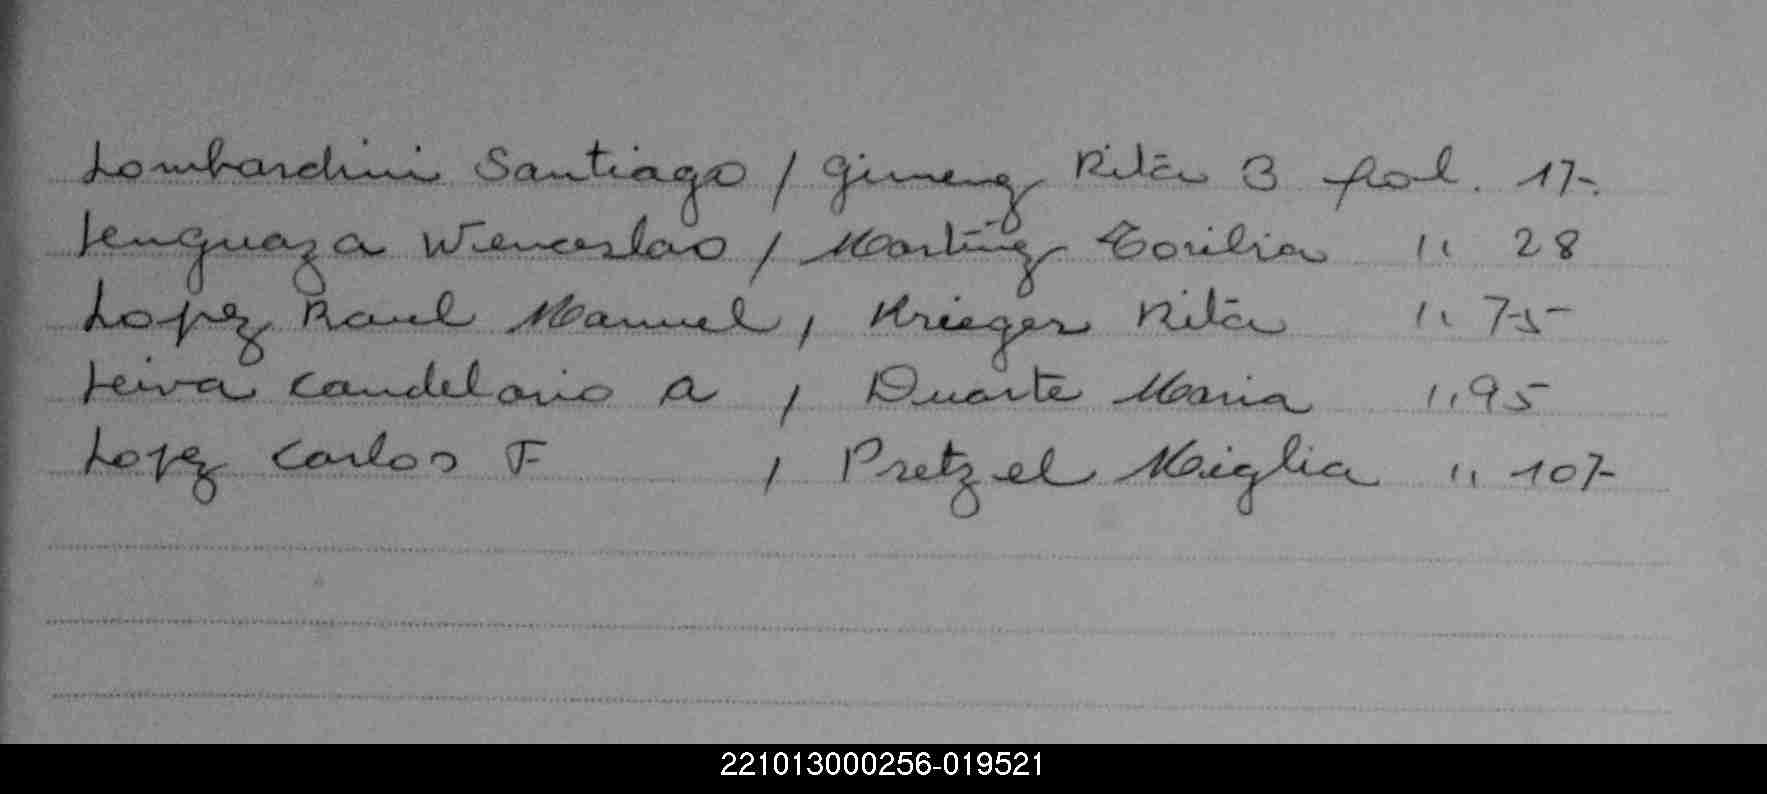 Lombardini Santiago / Gimenez Rita B fol. 17-.
Lenguaza Wenceslao / Martinez Corilia " 28
Lopez Raul Manuel, Krieger Rita " 75-
Leiva Candelario A , Duarte Maria " 95
Lopez Carlos F , Pretzel Miglia " 107-
221013000256-019521